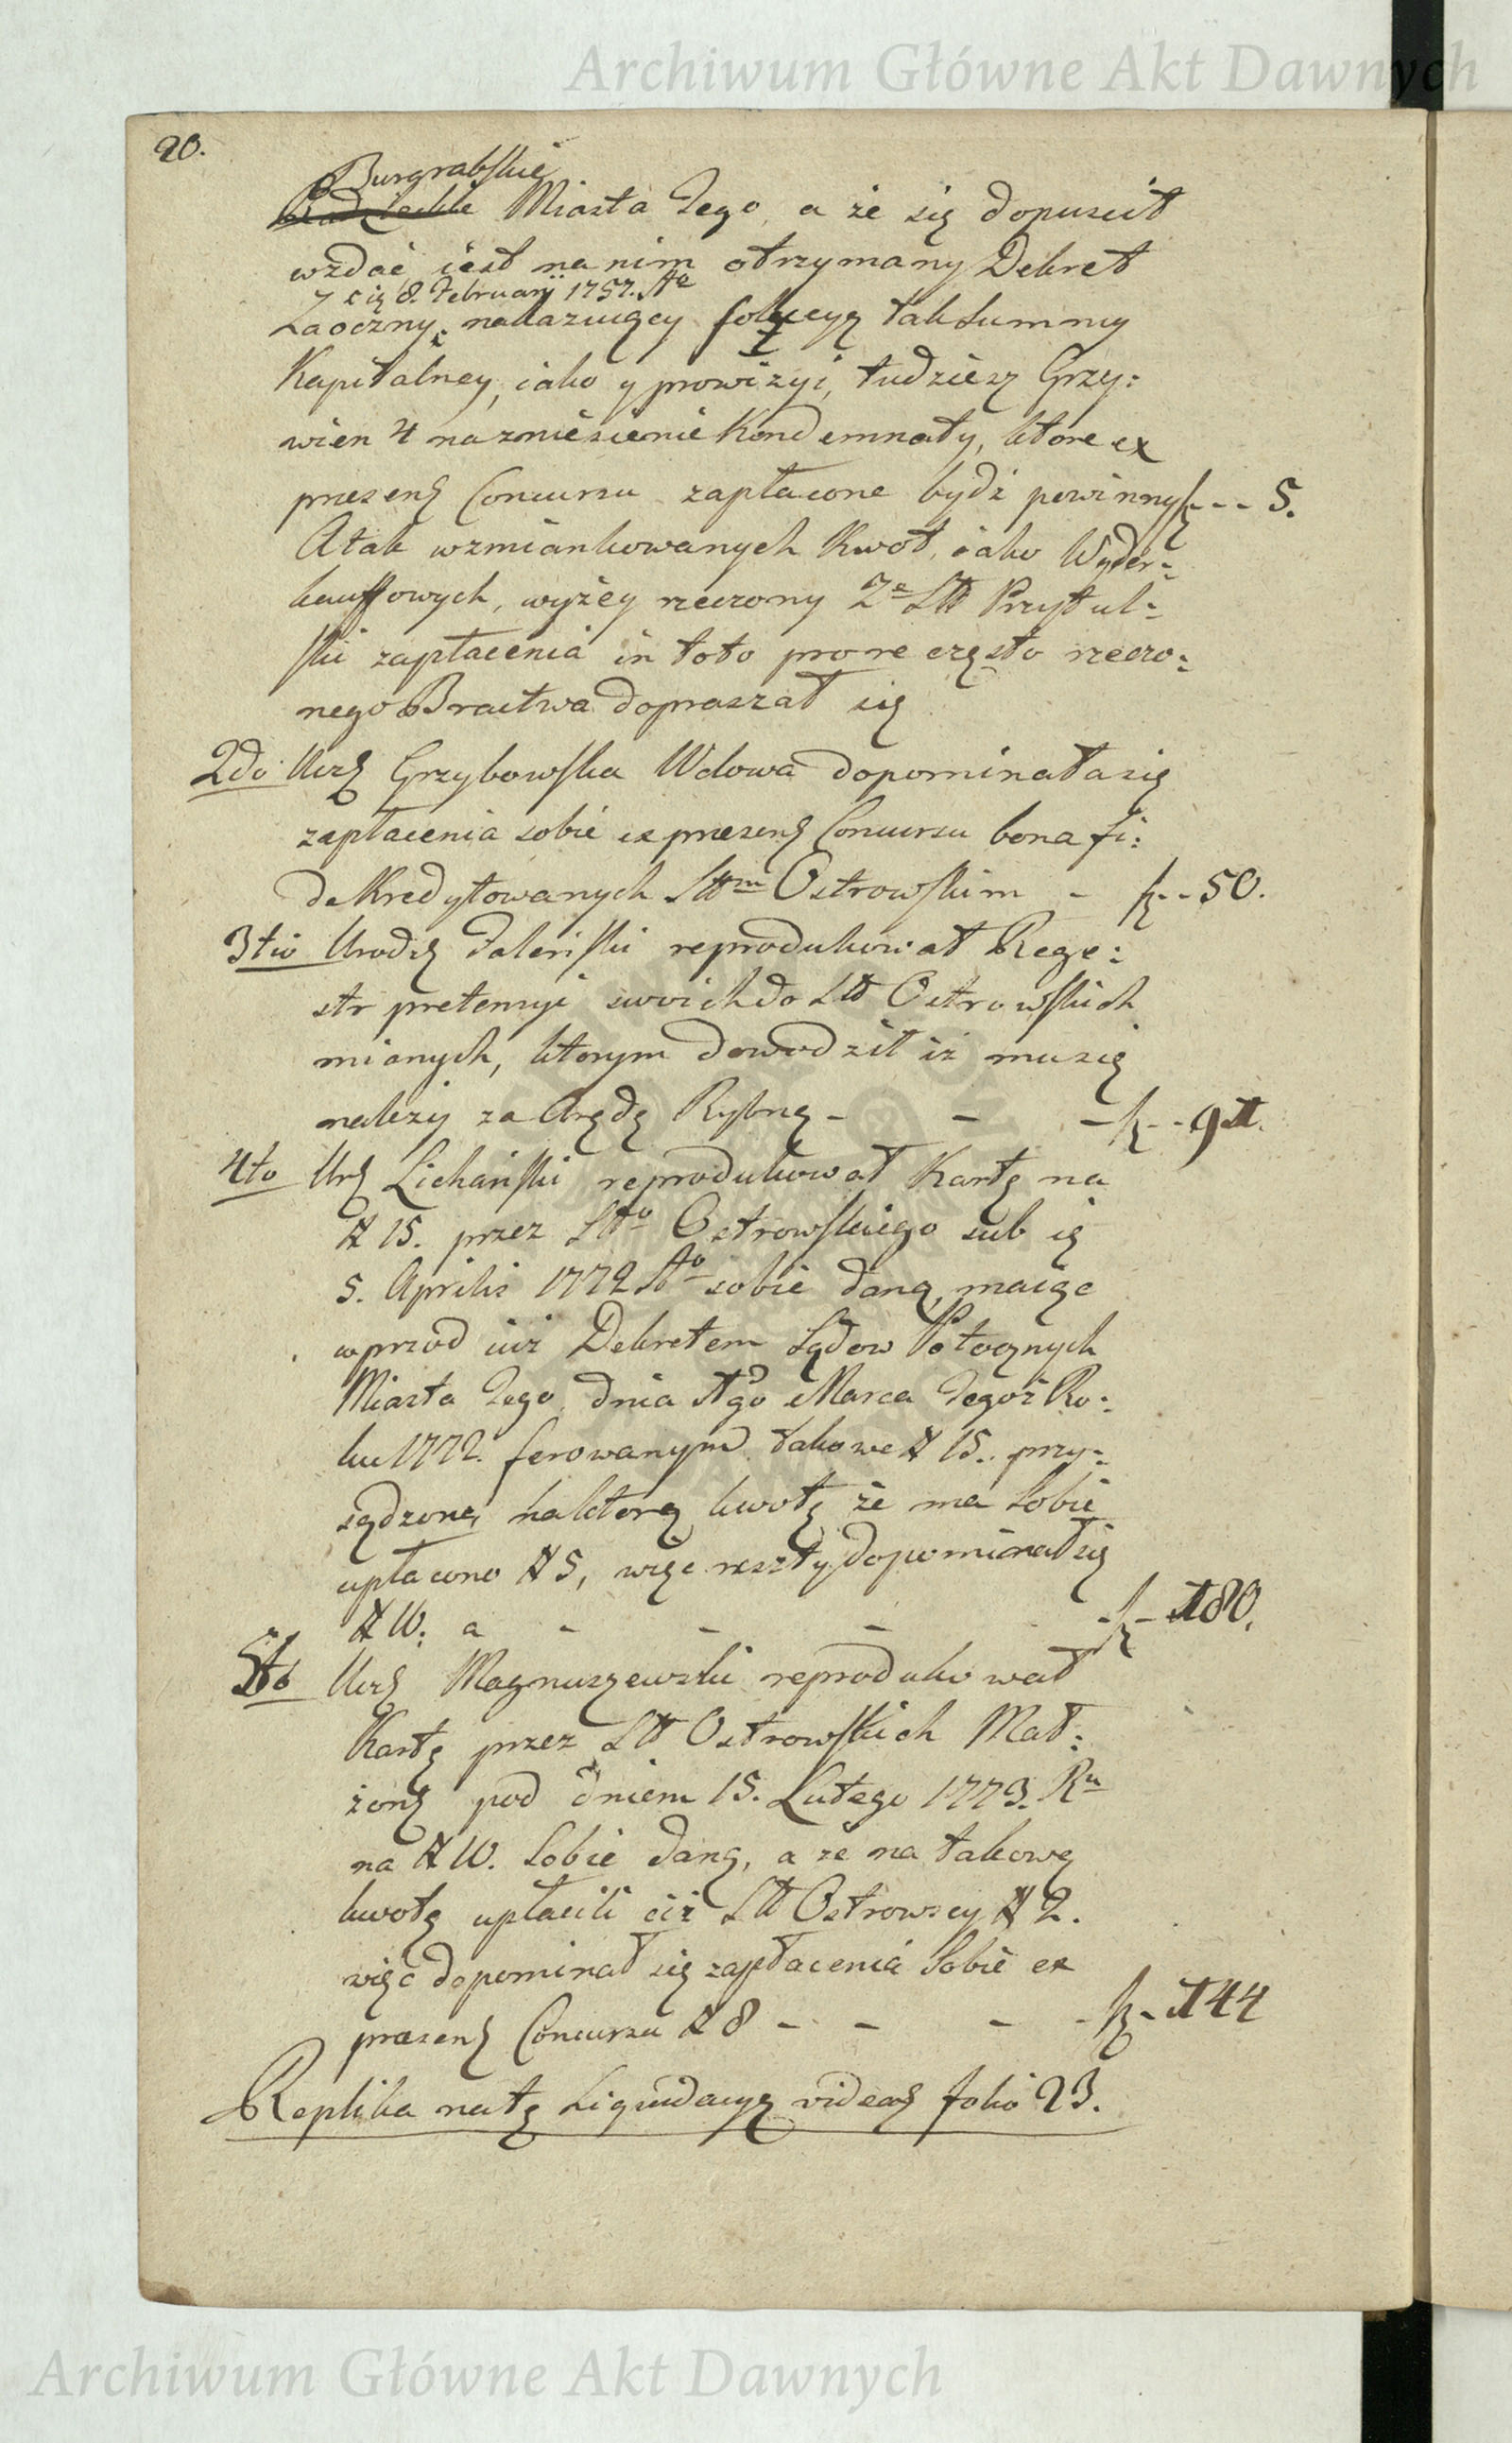 Archiwum Główne Akt Dawnych
20.
Burgrabskie
Miasta Tego, a że się dopuścił
wzdać iest na nim otrzymany Dekret
z rię 8. Februarij 1757. Ao
Zaoczny, nakazuiący folucyą tak Summy
Kapitalney, iako y prowizyi, tudziesz Grzy:
wien 4 na zniesienie Kondemnaty, ktore ex
presenſ Concursu zapłacone bydź powinny f - - - 5.
A tak wzmiankowanych Kwot, iako Wyder:
kauffowych, wyżey rzeczony Ze Stt Przytul:
ski zapłacenia in toto pro re często rzeczo:
nego Bractwa dopraszał się
2do Urz Grzybowska Wdowa dopominała się
zapłacenia sobie ex presenſ Concursu bona fi:
de Kredytowanych Sttm Ostrowskim - f - - 50.
3tio Urodz Zaleński reprodukował Rege:
str pretensyi swoich do Stt Ostrowskich
mianych, ktorym dowodził iż mu się
należy za Arędę Rybną - - - f - - 94.
4to Urz Lichański reprodukował Kartę na
# 15. przez Stto Ostrowskiego sub rię
5. Aprilis 1772 Ao sobie daną, maiąc
wprzod iuż Dekretem Sądow Potocznych
Miasta Tego, dnia 4go Marca Tegoż Ro:
ku 1772. ferowanym takowe # 15. przy:
sądzone, na ktorą kwotę że ma Sobie
upłacono # 5, więc reszty dopominał się
# 10: a - - - - f - 180.
5to Urz Magnuszewski reprodukował
Kartę przez Stt Ostrowskich Mał:
żonſ pod dniem 15. Lutego 1773. Ru
na # 10. Sobie daną, a że na takową
kwotę upłacili ciż Stt Ostrowscy # 2.
więc dopominał się zapłacenia Sobie ex
præsenſ Concursu # 8 - - - - f - 144
Replika na tę Liquidacyą videaſ folio 23.
Archiwum Główne Akt Dawnych